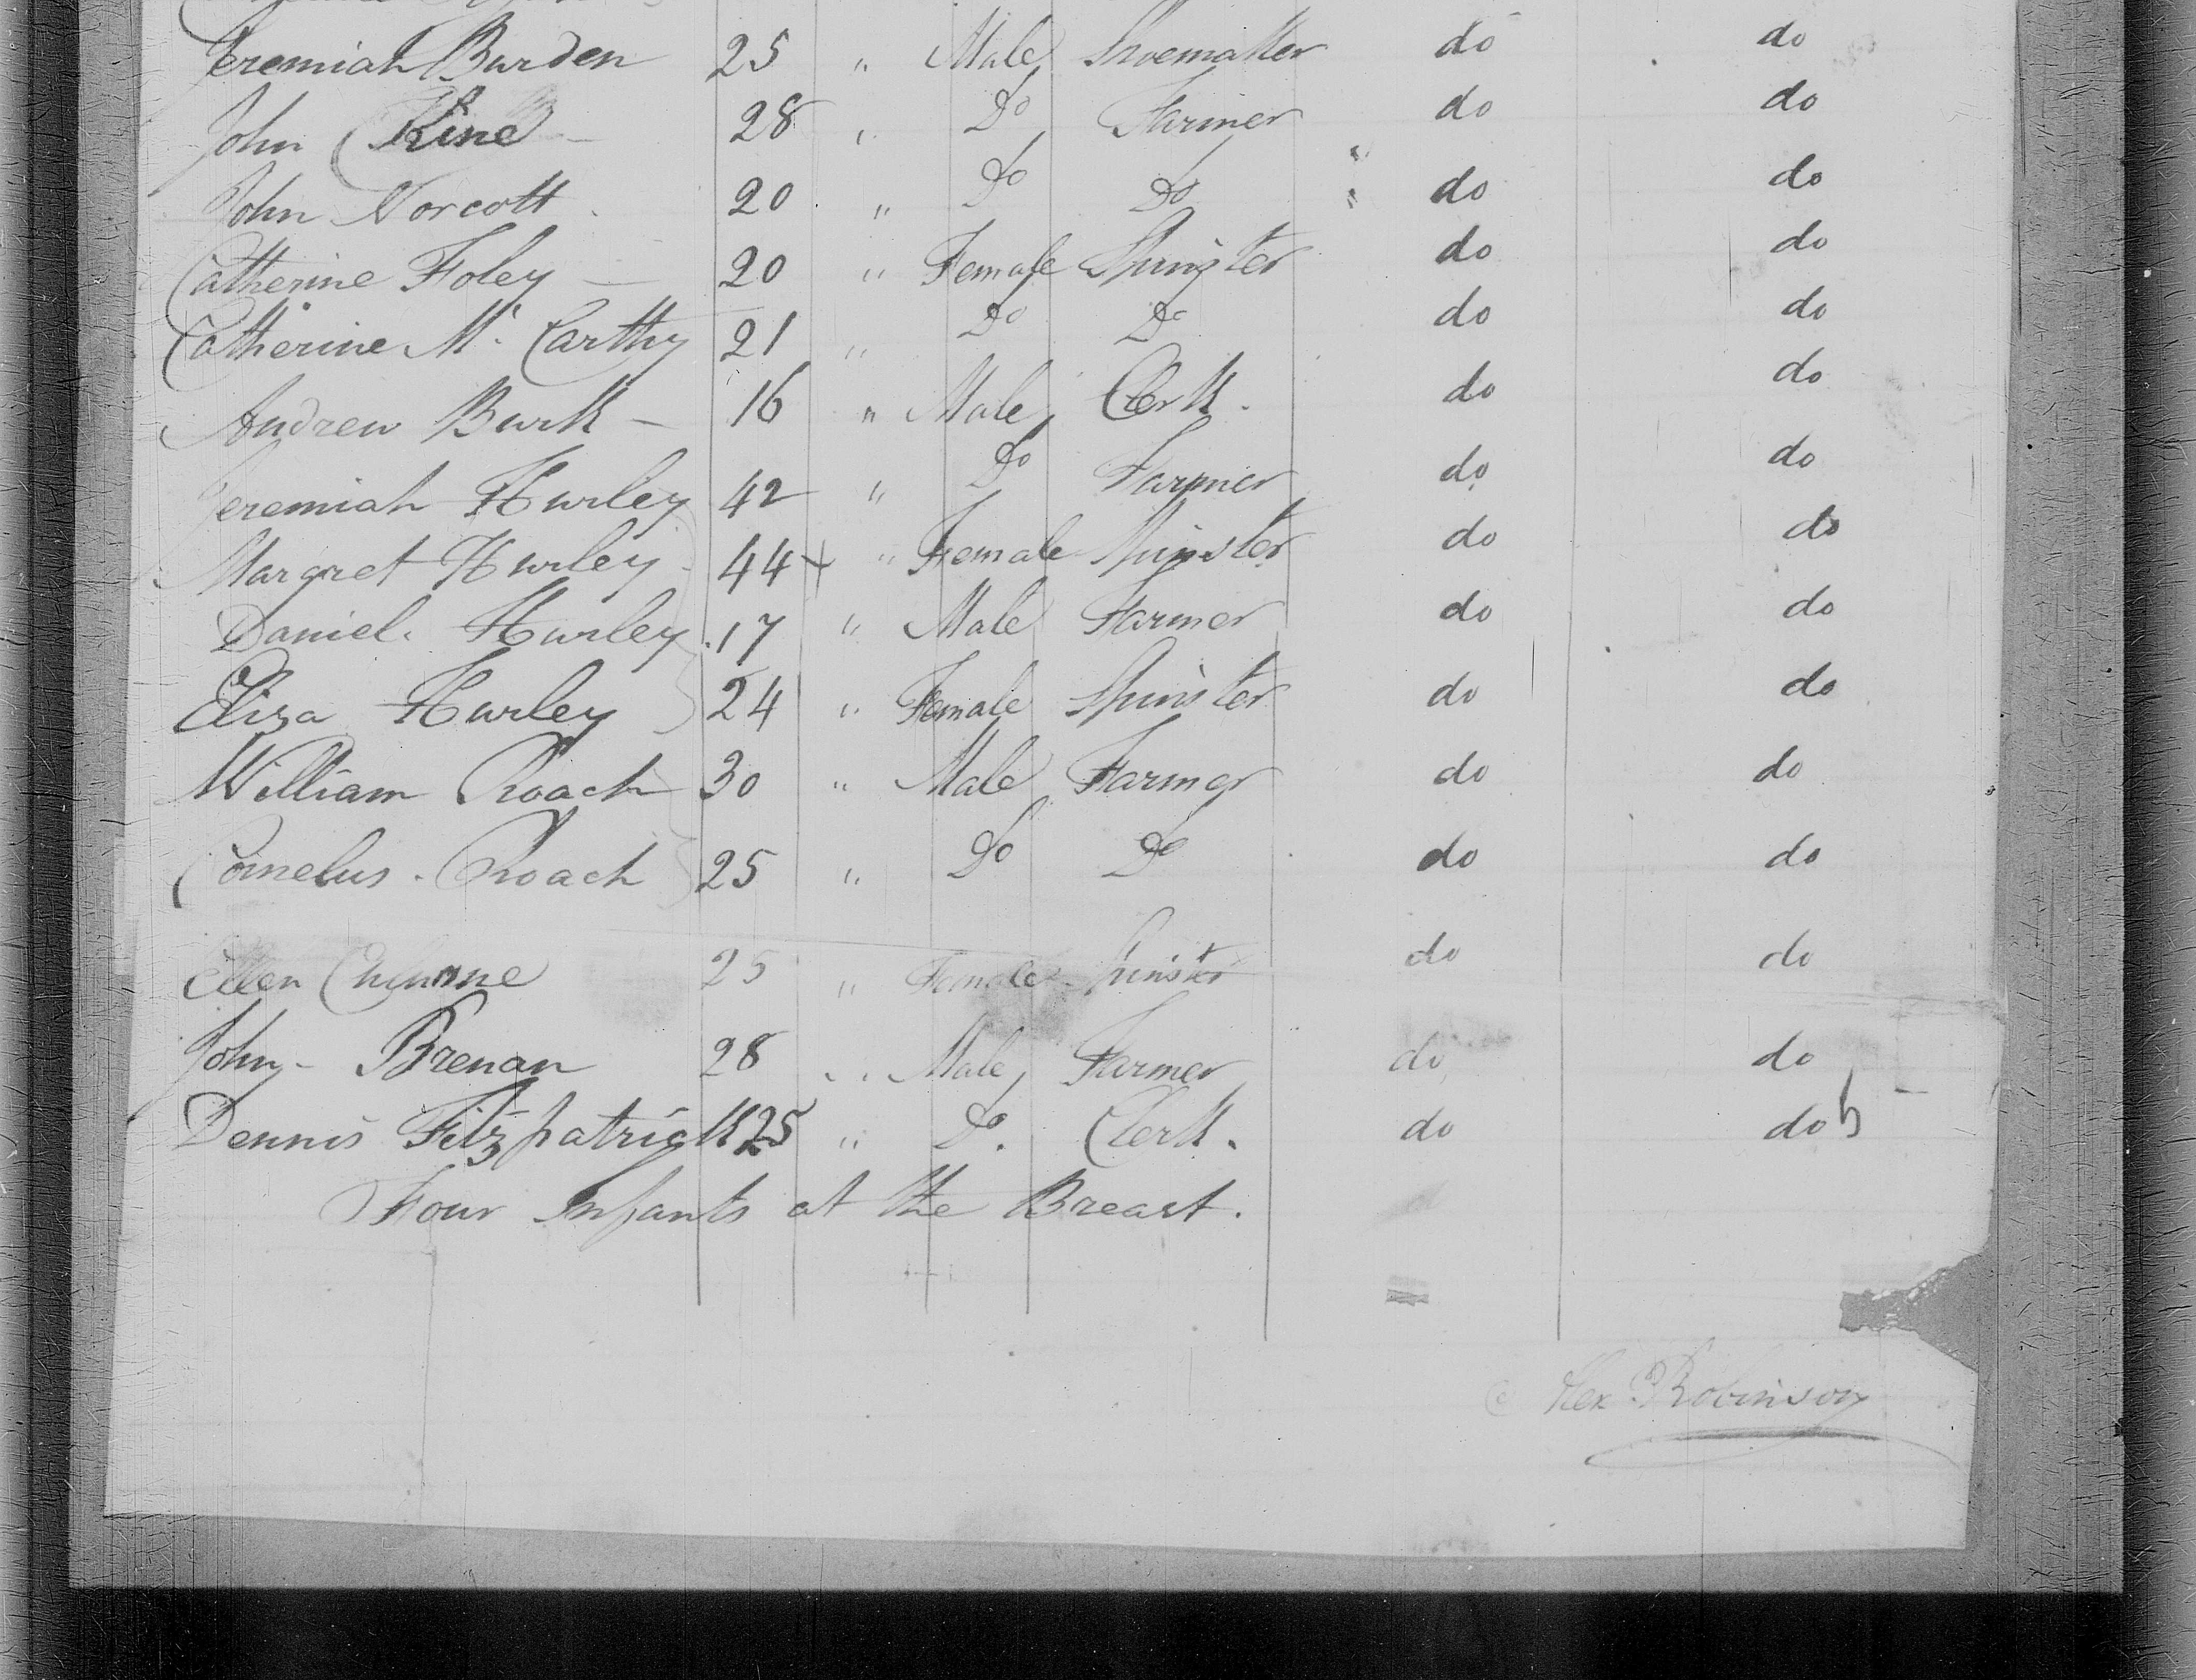 Jeremiah Burden 25 " Male Shoemaker do do
John Rine 28 " Do Farmer do do
John Norcott 20 " Do Do do do
Catherine Foley 20 " Female Spinster do do
Catherine Mc Carthy 21 " Do Do do do
Andrew Burk 16 " Male Clerk. do do
Jeremiah Hurley 42 " Do Farmer do do
Margret Hurley 44 " Female Spinster do do
Daniel. Hurley 17 " Male Farmer do do
Eliza Hurley 24 " Female Spinster do do
William Roach 30 " Male Farmer do do
Cornelus. Roach 25 " Do Do do do
Ellen 25 " Female Spinster do do
John Brenan 28 " Male Farmer do do
Dennis Fitzpatrick 25 " Do. Clerk. do do
Four Infants at the Breast.
Alex Robinson